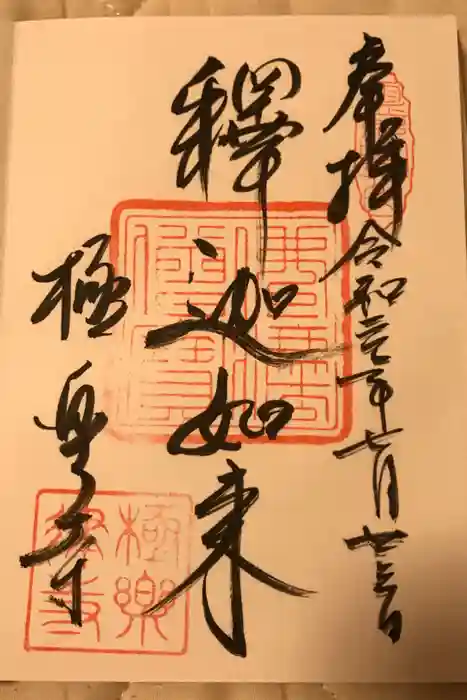 奉拝 令和元年七月廿六日
釋迦如来
極楽寺
極樂律寺